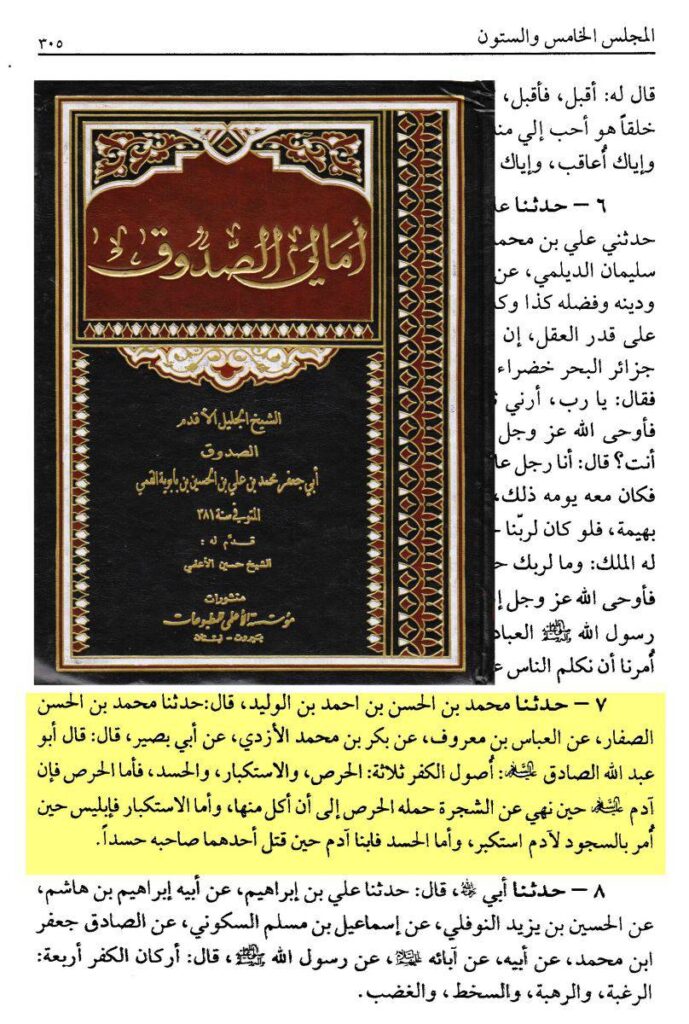 المجلس الخامس والستون ٣٠٥
قال له: أقبل، فأقبل،
خلقاً هو أحب إلي
وإياك أُعاقب، وإياك
٦ – حدثنا
حدثني علي بن محمد
سليمان الديلمي، عن
ودينه وفضله كذا
على قدر العقل، إن
جزائر البحر خضراء
فقال: يا رب، أرني
فأوحى الله عز وجل
أنت؟ قال: أنا رجل
فكان معه يومه ذلك،
بهيمة، فلو كان لربّنا
له الملك: وما لربك
فأوحى الله عز وجل
رسول الله ﷺ
أُمرنا أن نكلم الناس
أمالي الصَّدُوق
الشيخ الجليل الأقدم
الصدوق
أبي جعفر محمد بن علي بن الحسين بن بابوية القمي
المتوفى سنة ٣٨١
قدّم له :
الشيخ حسين الأعلمي
منشورات
مؤسسة الأعلمي للمطبوعات
بيروت - لبنان
٧ – حدثنا محمد بن الحسن بن احمد بن الوليد، قال:حدثنا محمد بن الحسن
الصفار، عن العباس بن معروف، عن بكر بن محمد الأزدي، عن أبي بصير، قال: قال أبو
عبد الله الصادق عليه السلام: أُصول الكفر ثلاثة: الحرص، والاستكبار، والحسد، فأما الحرص فإن
آدم عليه السلام حين نهي عن الشجرة حمله الحرص إلى أن أكل منها، وأما الاستكبار فإبليس حين
أُمر بالسجود لآدم استكبر، وأما الحسد فابنا آدم حين قتل أحدهما صاحبه حسداً.
٨ – حدثنا أبي، قال: حدثنا علي بن إبراهيم، عن أبيه إبراهيم بن هاشم،
عن الحسين بن يزيد النوفلي، عن إسماعيل بن مسلم السكوني، عن الصادق جعفر
ابن محمد، عن أبيه، عن آبائه عليهم السلام، عن رسول الله ﷺ، قال: أركان الكفر أربعة:
الرغبة، والرهبة، والسخط، والغضب.